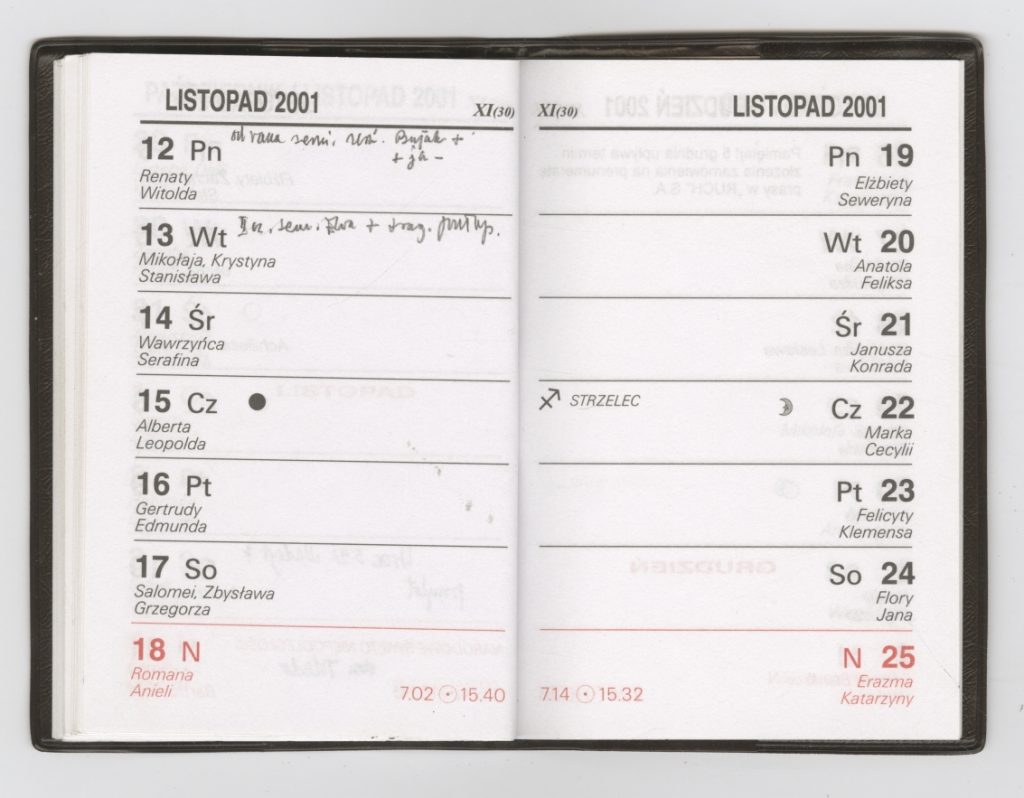 LISTOPAD 2001 XI(30)
12 Pn od rana semi. Bujak +
+ ja -
Renaty
Witolda
13 Wt sem. + trag.
Mikołaja, Krystyna
Stanisława
14 Śr
Wawrzyńca
Serafina
15 Cz
Alberta
Leopolda
16 Pt
Gertrudy
Edmunda
17 So
Salomei, Zbysława
Grzegorza
18 N
Romana
Anieli
7.02 15.40
XI(30) LISTOPAD 2001
Pn 19
Elżbiety
Seweryna
Wt 20
Anatola
Feliksa
Śr 21
Janusza
Konrada
STRZELEC Cz 22
Marka
Cecylii
Pt 23
Felicyty
Klemensa
So 24
Flory
Jana
N 25
Erazma
Katarzyny
7.14 15.32